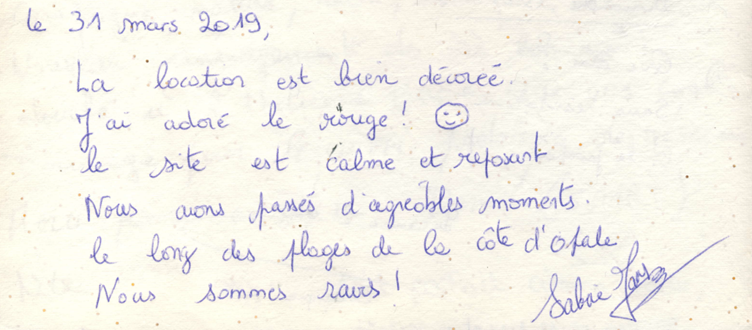 le 31 mars 2019,
La location est bien décorée.
J'ai adoré le rouge !
le site est calme et reposant
Nous avons passés d'agréables moments.
le long des plages de la côte d'opale
Nous sommes ravis !